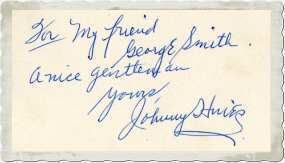 For My friend
George Smith.
A nice gentleman
yours,
Johnny